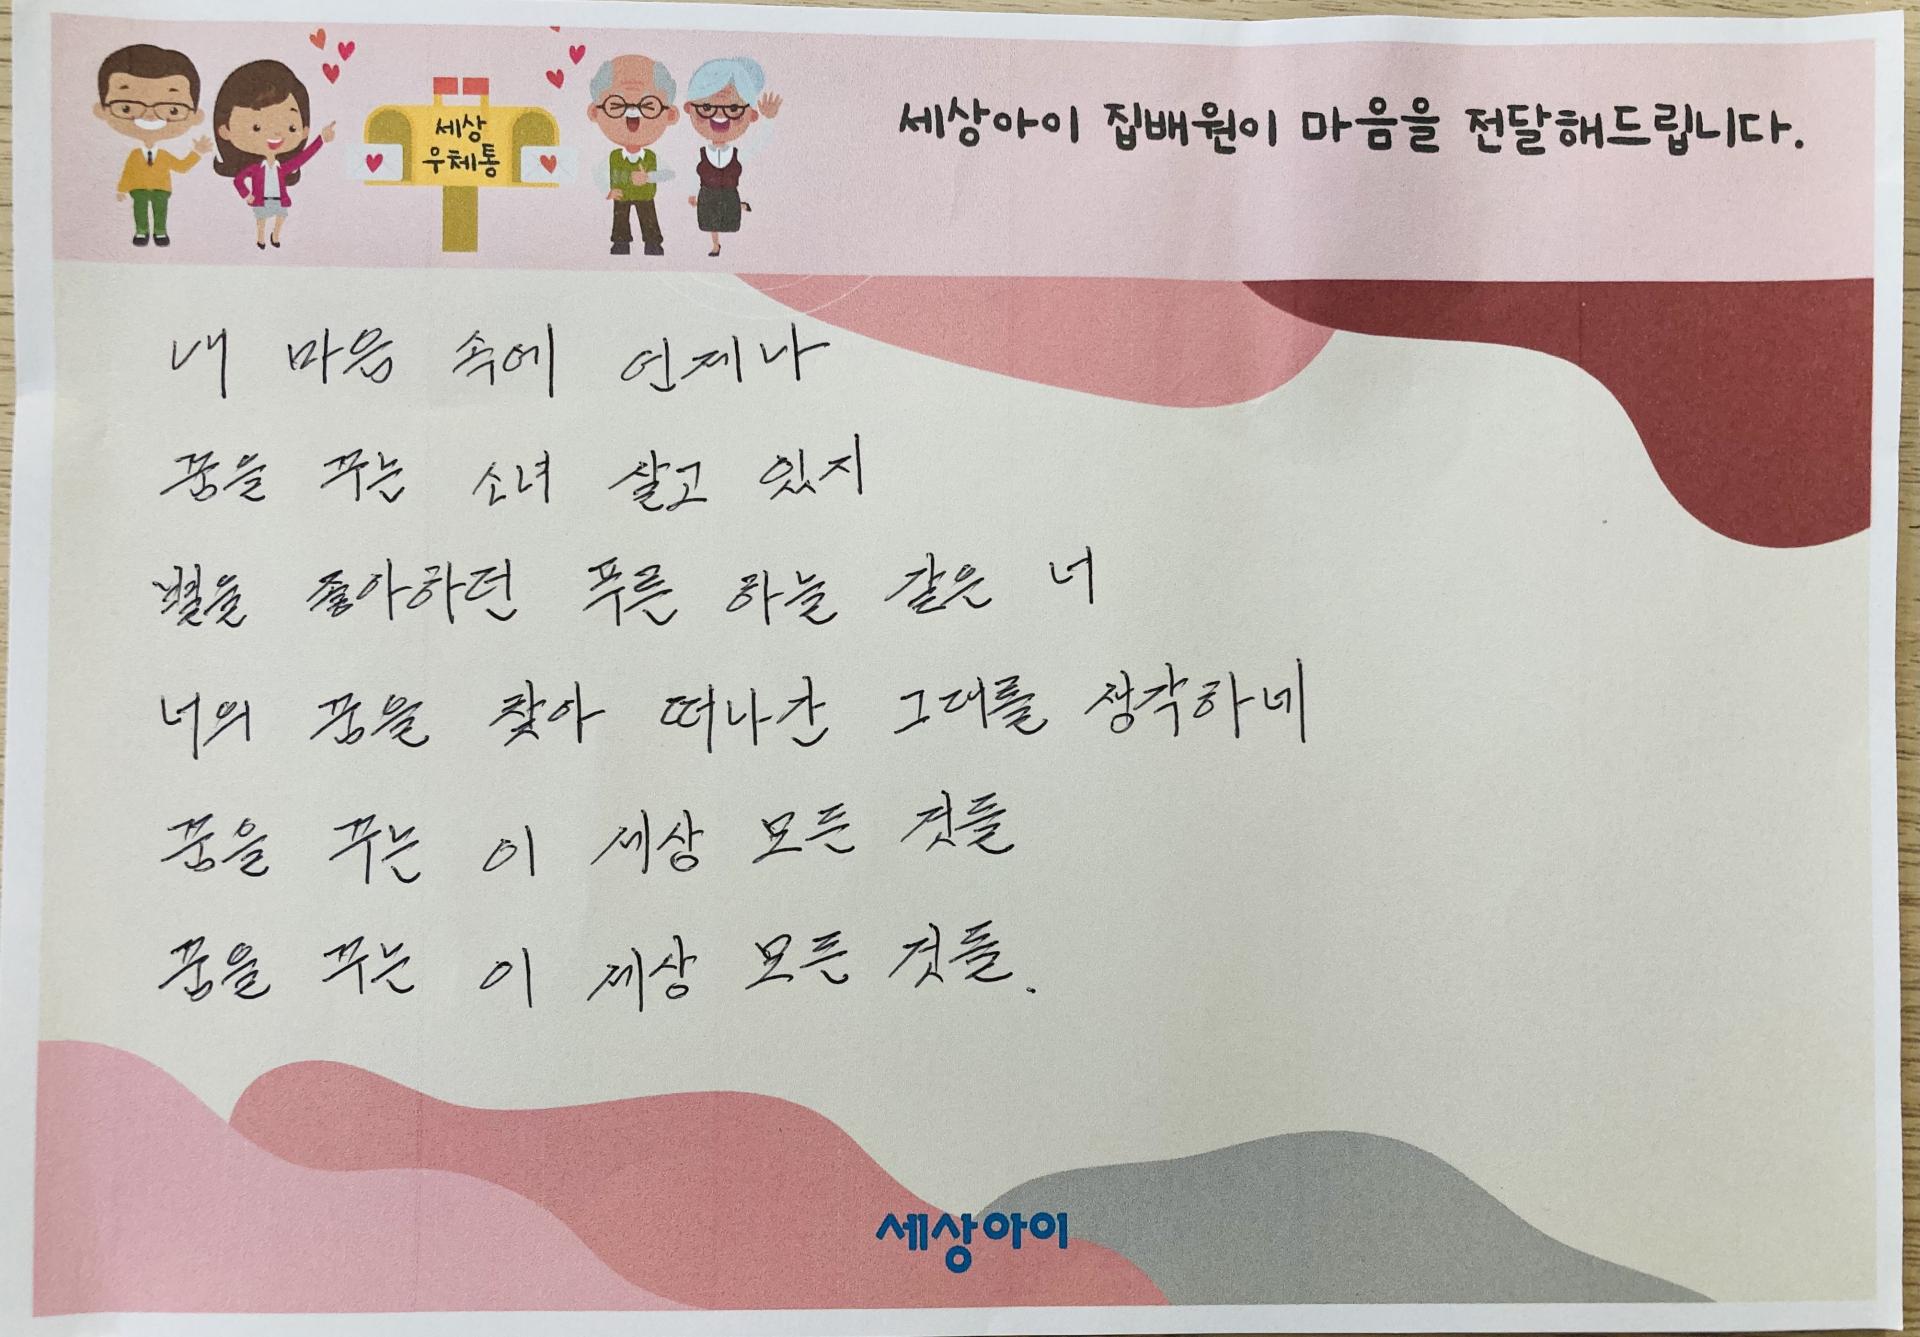 세상
우체통
세상아이 집배원이 마음을 전달해드립니다.
내 마음 속에 언제나
꿈을 꾸는 소녀 살고 있지
별을 좋아하던 푸른 하늘 같은 너
너의 꿈을 찾아 떠나간 그대를 생각하네
꿈을 꾸는 이 세상 모든 것들
꿈을 꾸는 이 세상 모든 것들.
세상아이